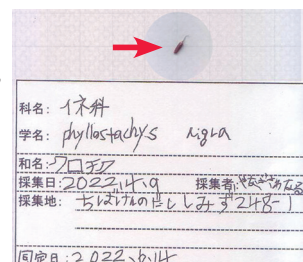 科名: イネ科
学名: phyllostachys nigra
和名: クロチク
採集日: 2022,4,9 採集者:
採集地: ちばけんのだししみず248-1
同定日: 2022,6,14